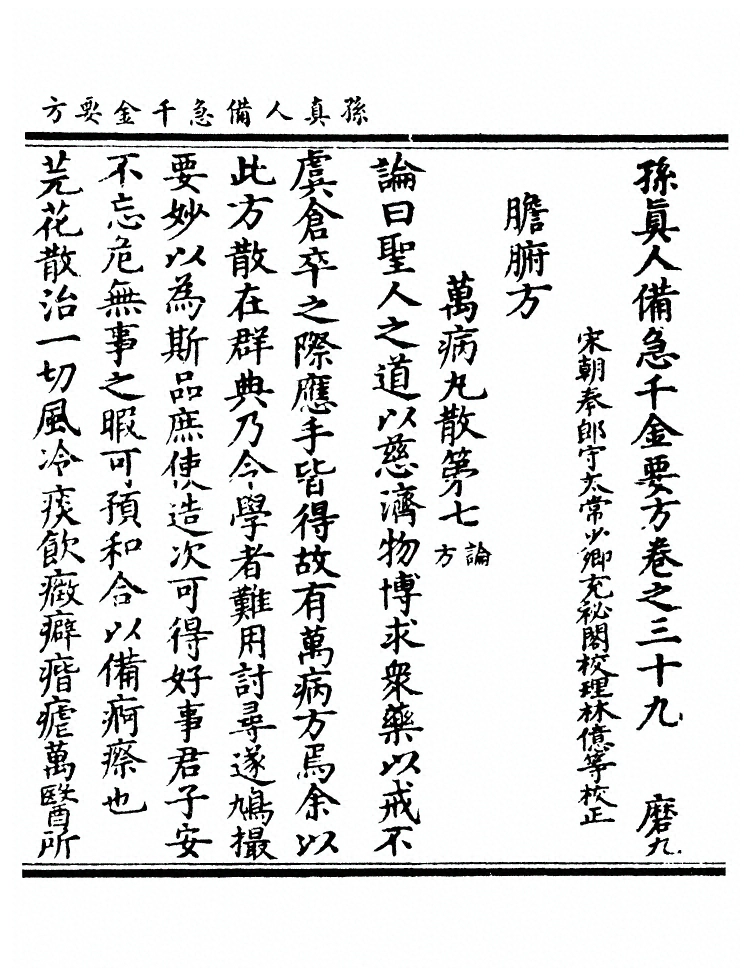 孫真人備急千金要方
孫眞人備急千金要方卷之三十九 磨九
宋朝奉郎守太常少卿充祕閣校理林億等校正
膽腑方
萬病丸散第七 論方
論曰聖人之道以慈濟物博求衆藥以戒不
虞倉卒之際應手皆得故有萬病方焉余以
此方散在群典乃令學者難用討尋遂鳩撮
要妙以為斯品庶使造次可得好事君子安
不忘危無事之暇可預和合以備痾瘵也
芫花散治一切風冷痰飲癥癖㾬瘧萬醫所